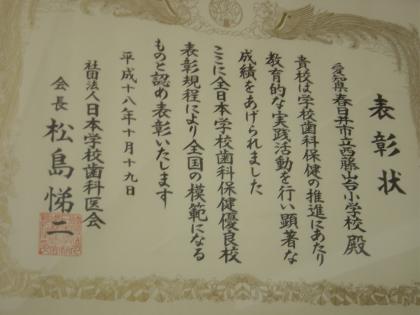 表彰状
愛知県春日井市立西藤山台小学校 殿
貴校は学校歯科保健の推進にあたり
教育的な実践活動を行い顕著な
成績をあげられました
ここに全日本学校歯科保健優良校
表彰規程により全国の模範になる
ものと認め表彰いたします
平成十八年十月十九日
社団法人日本学校歯科医会
会長 松島悌二